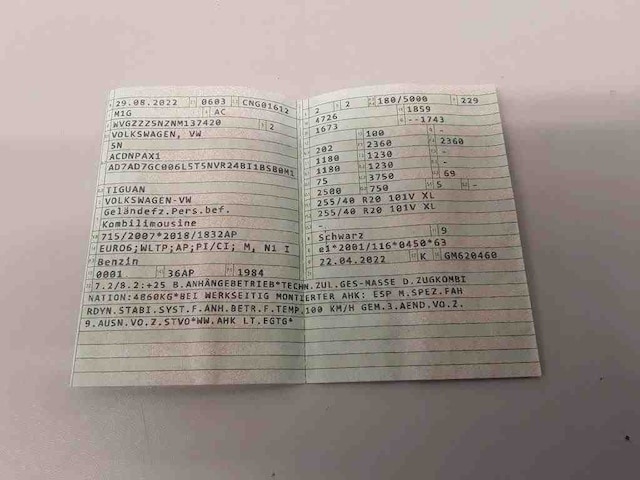 29.08.2022 0603 CNG01612
M1G AC
WVGZZZ5NZNM137420 2
VOLKSWAGEN, VW
5N
ACDNPAX1
AD7AD7GC006L5T5NVR24BI1BS80M1
TIGUAN
VOLKSWAGEN-VW
Geländefz.Pers.bef.
Kombilimousine
715/2007*2018/1832AP
EURO6;WLTP;AP;PI/CI; M, N1 I
Benzin
0001 36AP 1984
2 2 180/5000 229
4726 1859
1673 --1743
100 -
202 2360 2360
1180 1230 -
1180 1230 -
75 3750 69
2500 750 5 -
255/40 R20 101V XL
255/40 R20 101V XL
-
Schwarz 9
e1*2001/116*0450*63
22.04.2022 K GM620460
7.2/8.2:+25 B.ANHÄNGEBETRIEB*TECHN.ZUL.GES-MASSE D.ZUGKOMBI
NATION:4860KG*BEI WERKSEITIG MONTIERTER AHK: ESP M.SPEZ.FAH
RDYN.STABI.SYST.F.ANH.BETR.F.TEMP.100 KM/H GEM.3.AEND.VO.Z.
9.AUSN.VO.Z.STVO*WW.AHK LT.EGTG*